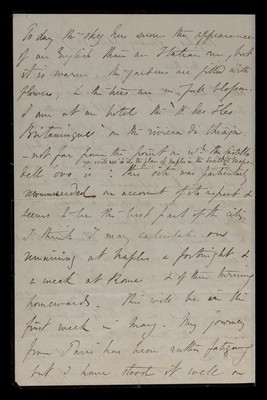 To day the sky here wears the appearance
of an English than an Italian one, but
it is warm, the gardens are filled with
flowers, & the trees are in full blossom.
I am at an hotel the "H. des Iles
Britanniques" on the riviera di Chiaja
- not far from the point on wh. the
(you will see it on the plan of Naples in the
: this site was particularly
recommended on account of its aspect &
seems to be the best part of the city.
I think I may calculate on
remaining at Naples a fortnight &
a week at Rome & of then turning
homewards. This will be in the
first week in May. My journey
from Paris has been rather fatiguing
but I have stood it well on